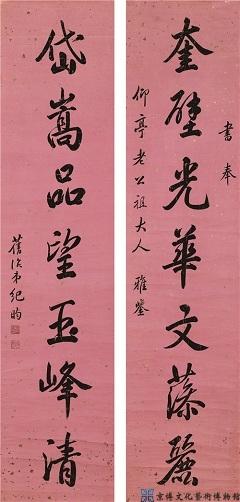 書奉
奎壁光華文藻麗
仰亭老公祖大人 雅鑒
岱嵩品望玉峰清
舊治弟紀昀
京博文化藝術博物館